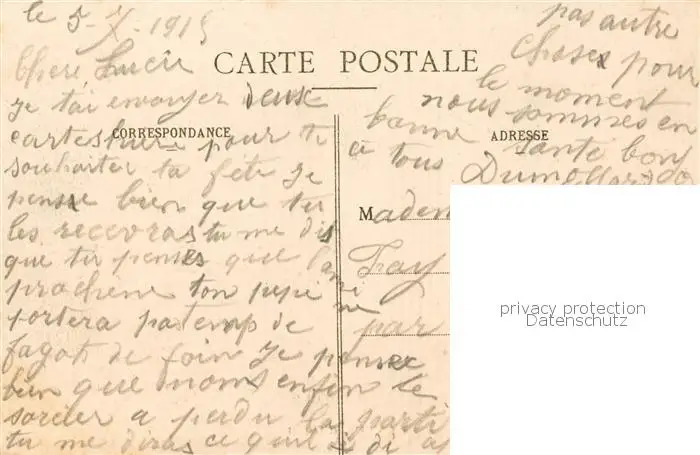 le 5-7-1915
Chere Lucie
CARTE POSTALE
CORRESPONDANCE
je tai envoyer deux
cartes hier pour te
souhaiter ta fete je
pense bien que tu
les recevras tu me dis
que tu penses que lani
prochene ton pepe ne
portera pas temp de
fagots de foin je pense
bien que nom enfin le
sorcier a perdu la parti
tu me diras ce quil di a
pas autre
choses pour
le moment
nous sommes en
bonne sante bonj
a tous
Dumollard
ADRESSE
Madem
Fay
par
privacy protection
Datenschutz